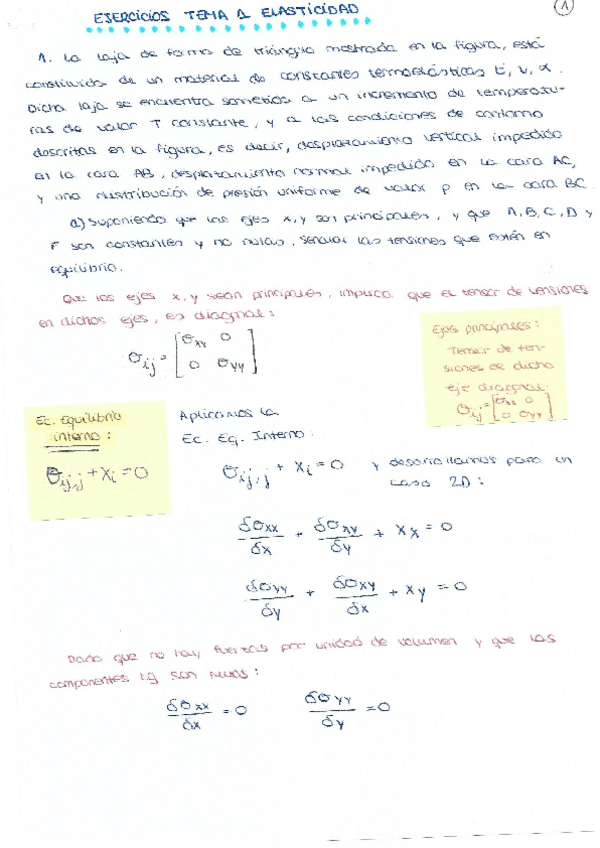 EJERCICIOS TEMA 1 ELASTICIDAD
1
1. La laja de forma de triángulo mostrada en la figura, está
constituida de un material de constantes termoelásticas E, ν, α.
Dicha laja se encuentra sometida a un incremento de temperatu-
ras de valor T constante, y a las condiciones de contorno
descritas en la figura, es decir, desplazamiento vertical impedido
en la cara AB, desplazamiento normal impedido en la cara AC,
y una distribución de presión uniforme de valor p en la cara BC.
a) Suponiendo que los ejes x, y son principales, y que A, B, C, D y
F son constantes y no nulas, señalar las tensiones que estén en
equilibrio.
Que los ejes x, y sean principales, implica que el tensor de tensiones
en dichos ejes, es diagonal:
σij = [σxx 0
0 σyy]
Ejes principales:
Tensor de ten-
siones de dicho
eje diagonal.
σij = [σxx 0
0 σyy]
Ec. Equilibrio
interno:
σij,j + Xi = 0
Aplicamos la
Ec. Eq. Interno:
σij,j + Xi = 0 y desarrollamos para un
caso 2D:
δσxx/δx + δσxy/δy + Xx = 0
δσyy/δy + δσxy/δx + Xy = 0
Dado que no hay fuerzas por unidad de volumen y que las
componentes son nulas:
δσxx/δx = 0 δσyy/δy = 0